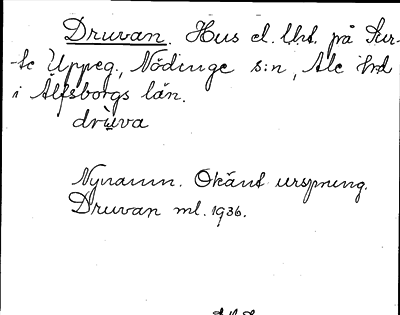 Druvan. Hus el. lht. på Sur-
te Uppeg., Nödinge s:n, Ale hrd
i Älfsborgs län.
drùva
Nynamn. Okänt ursprung.
Druvan ml. 1936.